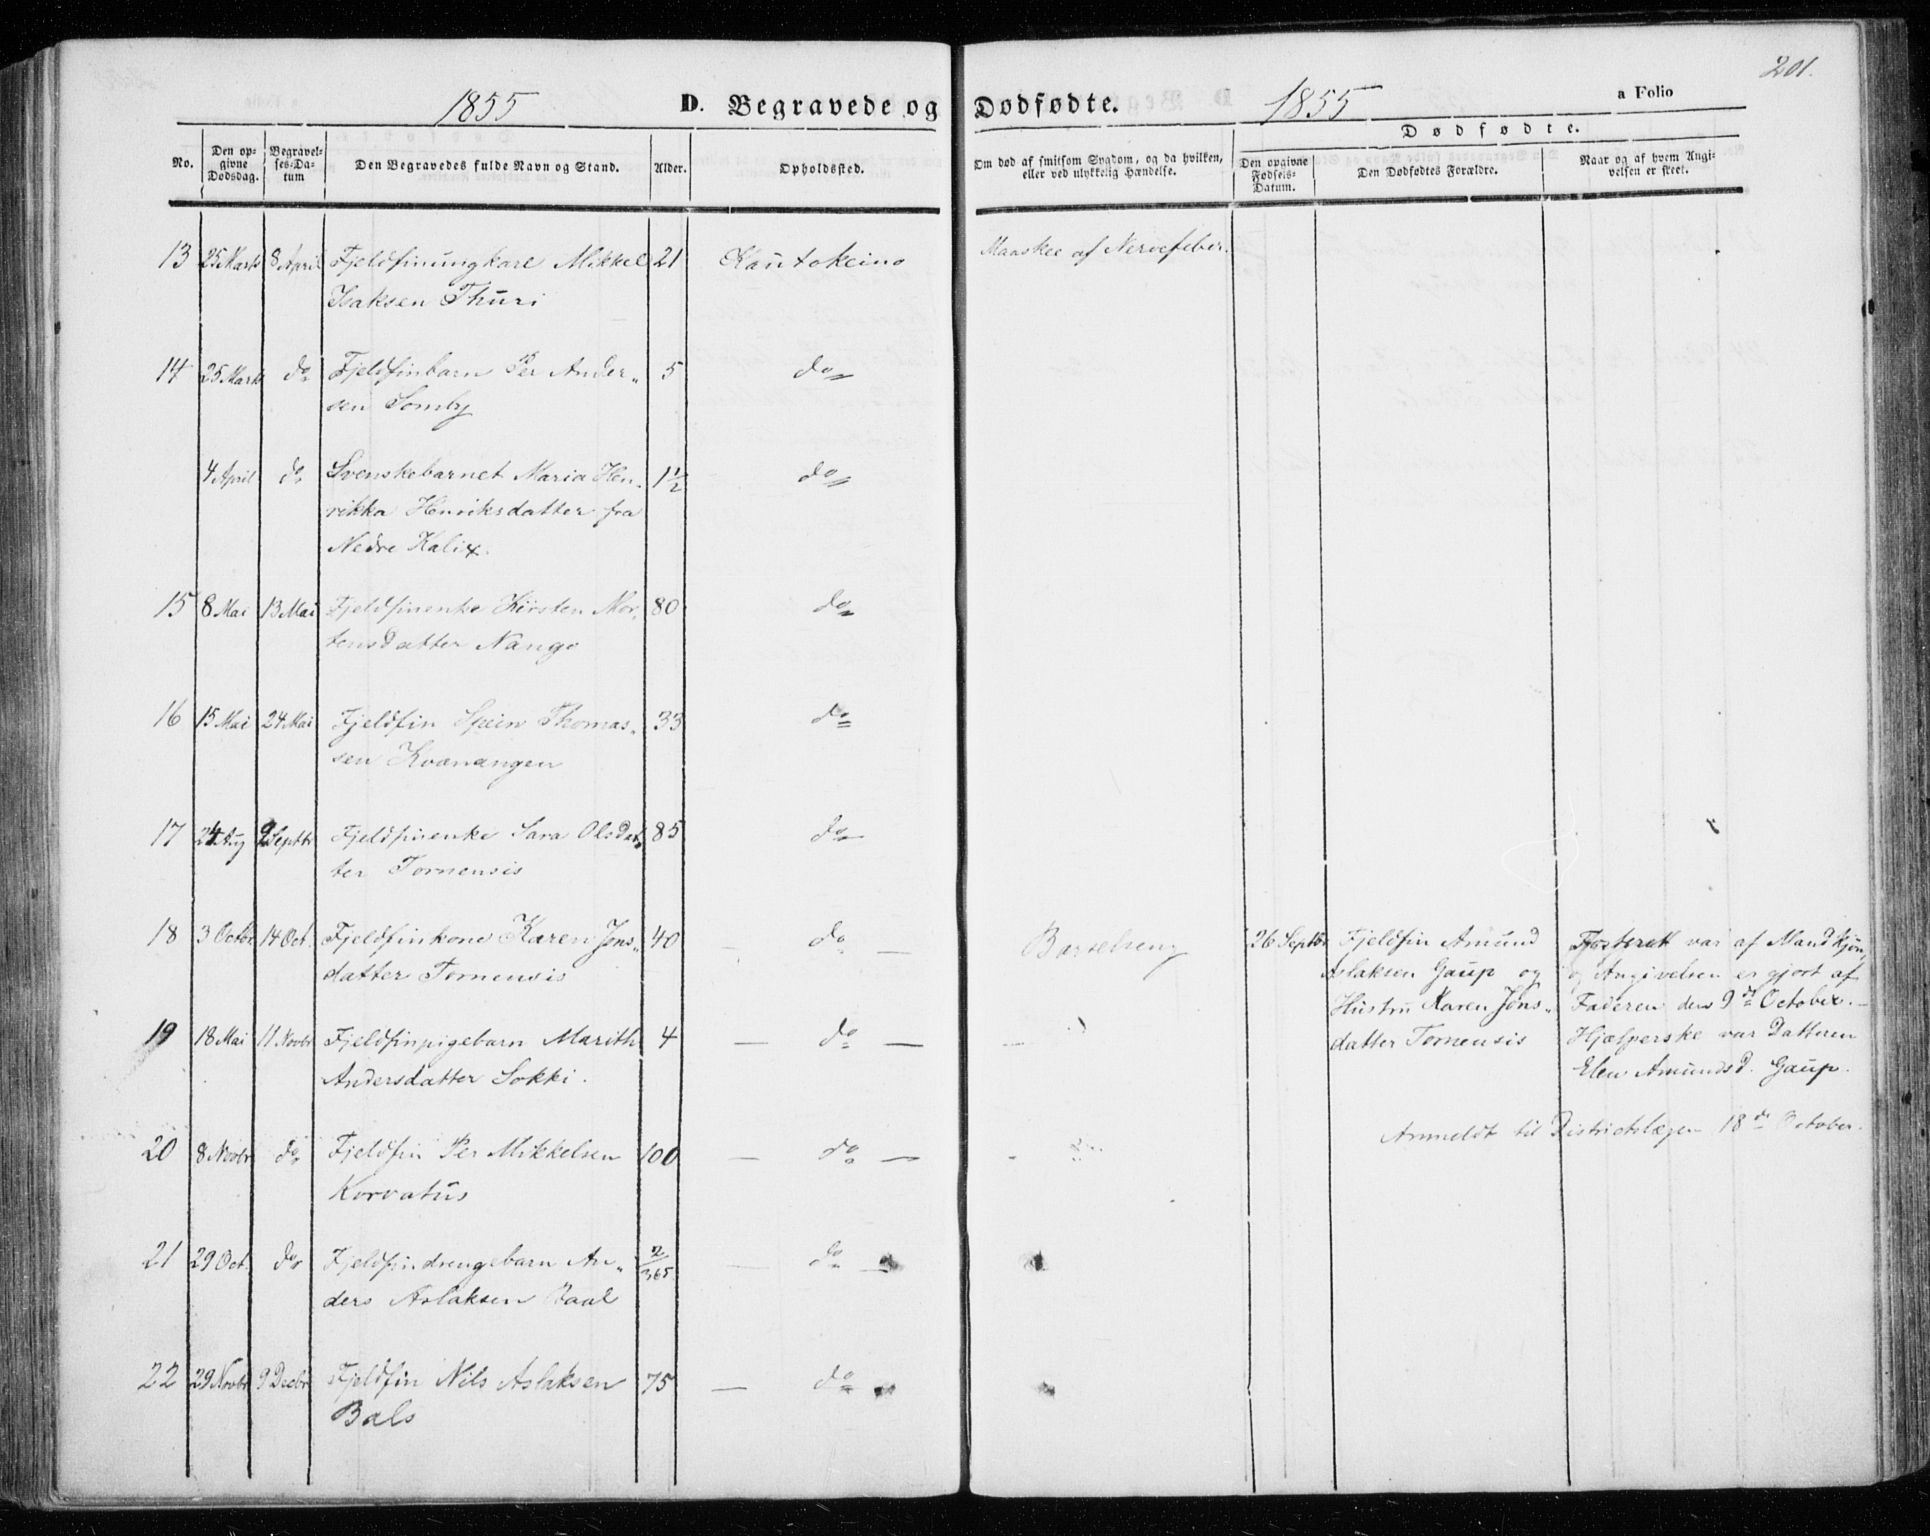 201.
1855 D. Begravede og Dødfødte. 1855 a Folio
No. Den opgivne Dødsdag. Begravelses-Datum Den Begravedes fulde Navn og Stand. Alder. Opholdssted. Om død af smitsom Sygdom, og da hvilken, eller ved ulykkelig Hændelse. Dødfødte. Den opgivne Fødsels-Datum. Den Dødfødtes Forældre. Naar og af hvem Angivelsen er skeet.
13 25 Marts 8 April Fjeldfinungkarl Mikkel 21 Kautokeino Maaskee af Nervefeber.
Isaksen Thuri
14 25 Marts do Fjeldfinbarn Per Ander- 5 do
sen Somby
4 April do Svenskebarnet Maria Hen- 1½ do
rikka Henriksdatter fra
Nedre Kalix.
15 8 Mai 13 Mai Fjeldfinenke Kirsten Mor- 80 do
tensdatter Nango
16 15 Mai 24 Mai Fjeldfin Spein Thomas- 33 do
sen Kvænangen
17 24 Aug 9 Septbr Fjeldfinenke Sara Olsdat- 85 do
ter Tornensis
18 3 Octbr 14 Oct. Fjeldfinkone Karen Jons- 40 — do — Barselseng 26 Septbr Fjeldfin Amund Fosteret var af Mandkjøn,
datter Tornensis Aslaksen Gaup og og Angivelsen er gjort af
Hustru Karen Jons- Faderen den 9de October. —
19 18 Mai 11 Novbr Fjeldfinpigebarn Marith 4 — do — datter Tornensis Hjælperske var Datteren
Andersdatter Sokki. Elen Amundsd. Gaup.
Anmeldt til Districtslægen 18de October.
20 8 Novbr do Fjeldfin Per Mikkelsen 100 — do —
Korvatus
21 29 Oct. do Fjeldfindrengebarn An- 2/365 — do —
ders Aslaksen Baal
22 29 Novbr 9 Decbr Fjeldfin Nils Aslaksen 75 — do —
Bals